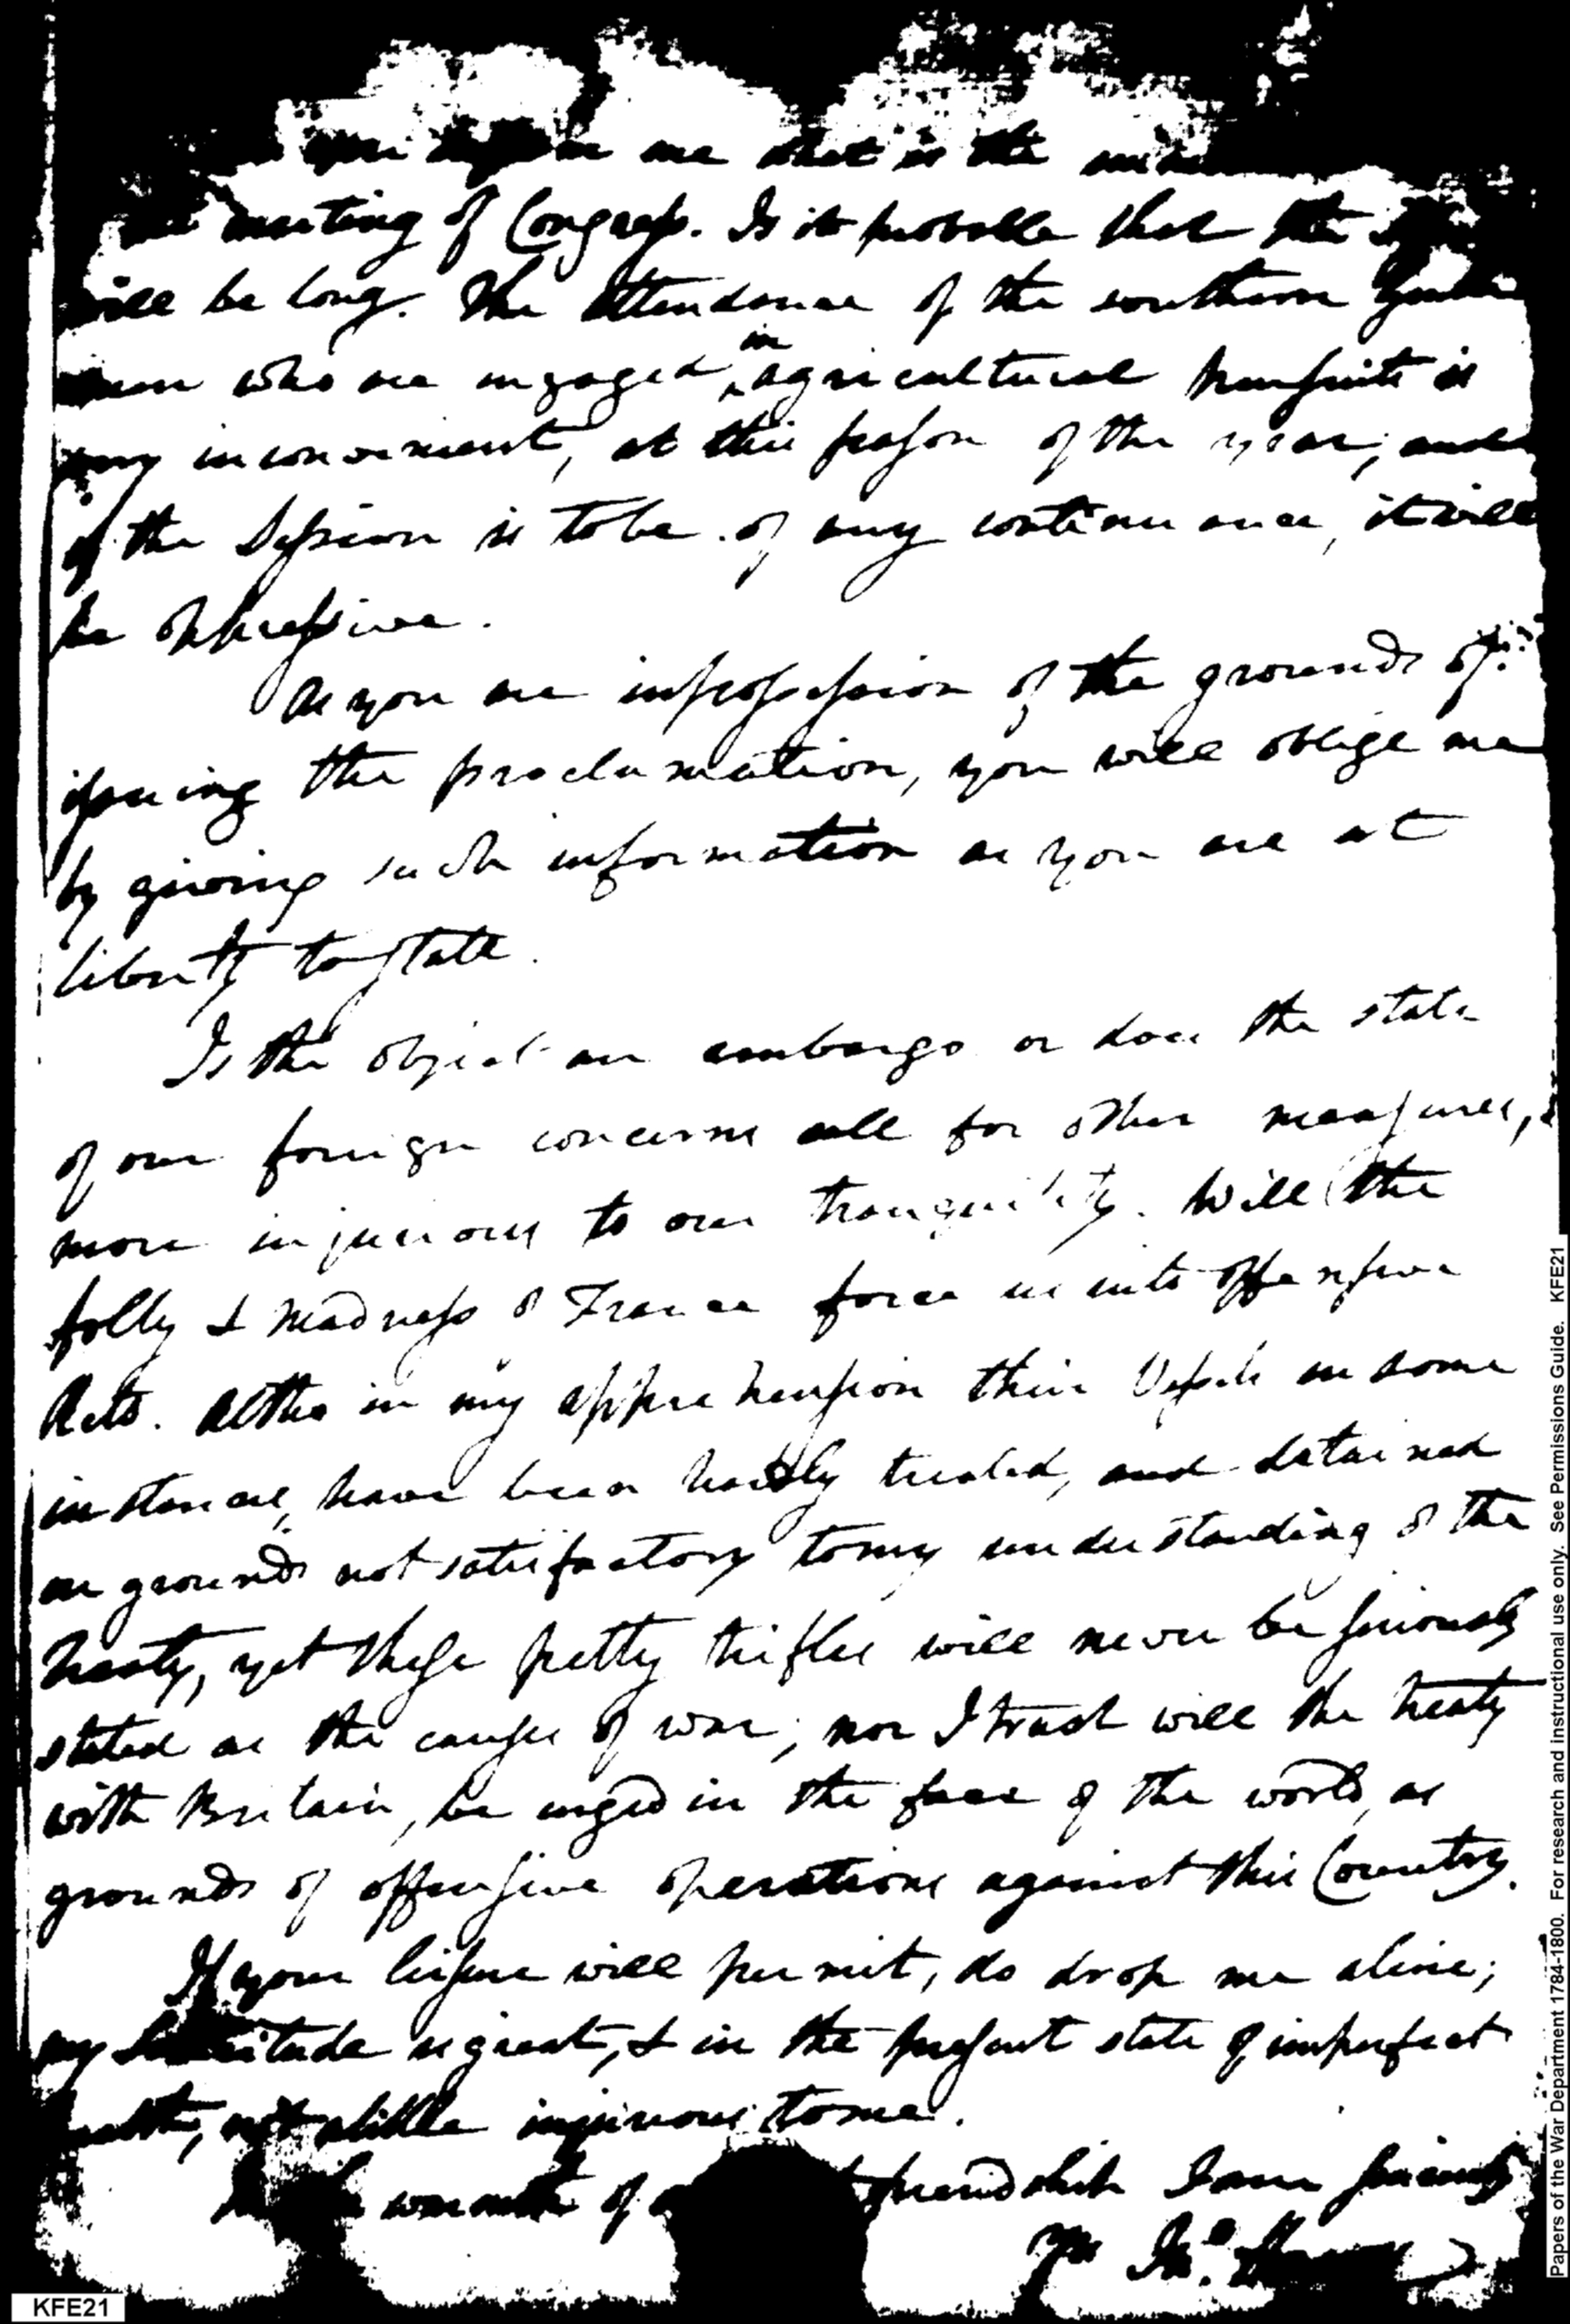 me what is the
meeting of Congress. Is it probable that the
will be long. The attendance of the southern
men who are engaged in agricultural pursuits is
very inconvenient, at this season of the year; and
if the Session is to be of any continuance, it will
be oppressive.
As you are in possession of the grounds of
issuing the proclamation, you will oblige me
by giving such information as you are at
liberty to state.
Is the object an embargo or does the state
of our foreign concerns call for other measures,
more injurious to our tranquility. Will the
folly & madness of France force us into offensive
Acts. Altho in my apprehension their Vessels in some
instances, have been hardly treated, and detained
on grounds not satisfactory to my understanding of the
treaty, yet these petty trifles will never be seriously
stated as the causes of war; nor I trust will the treaty
with Britain, be urged in the face of the world, as
grounds of offensive operations against this Country.
If your leisure will permit, do drop me a line;
my is great, & in the present state of imperfect
health, not a little injurious to me.
warmth of friendship I am sincerely
KFE21
Papers of the War Department 1784-1800. For research and instructional use only. See Permissions Guide. KFE21